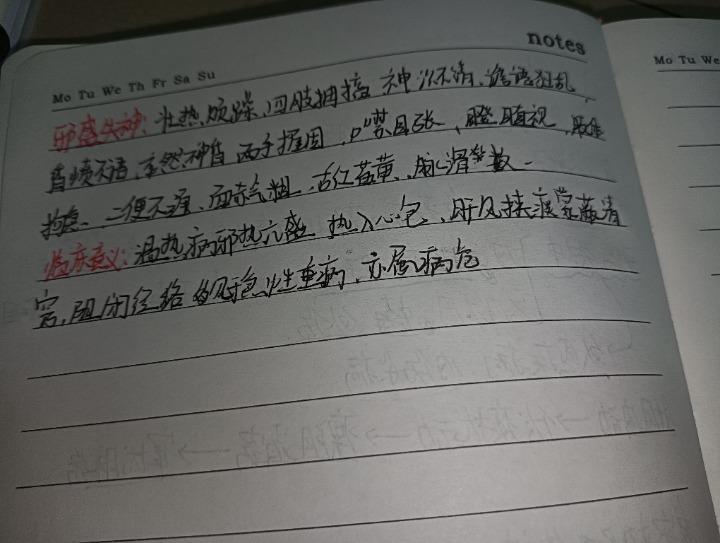 notes
Mo Tu We Th Fr Sa Su
Mo Tu We
邪盛失神：壮热烦躁、四肢抽搐 神识不清、谵语狂乱
昏愦不语、卒然神昏 两手握固、口噤目张、瞪目直视、
二便不通、面赤气粗、舌红苔黄、脉滑数
临床意义：温热病邪热亢盛 热入心包、肝风挟痰蒙蔽清
窍，阻闭经络 多见急性重病、亦属病危